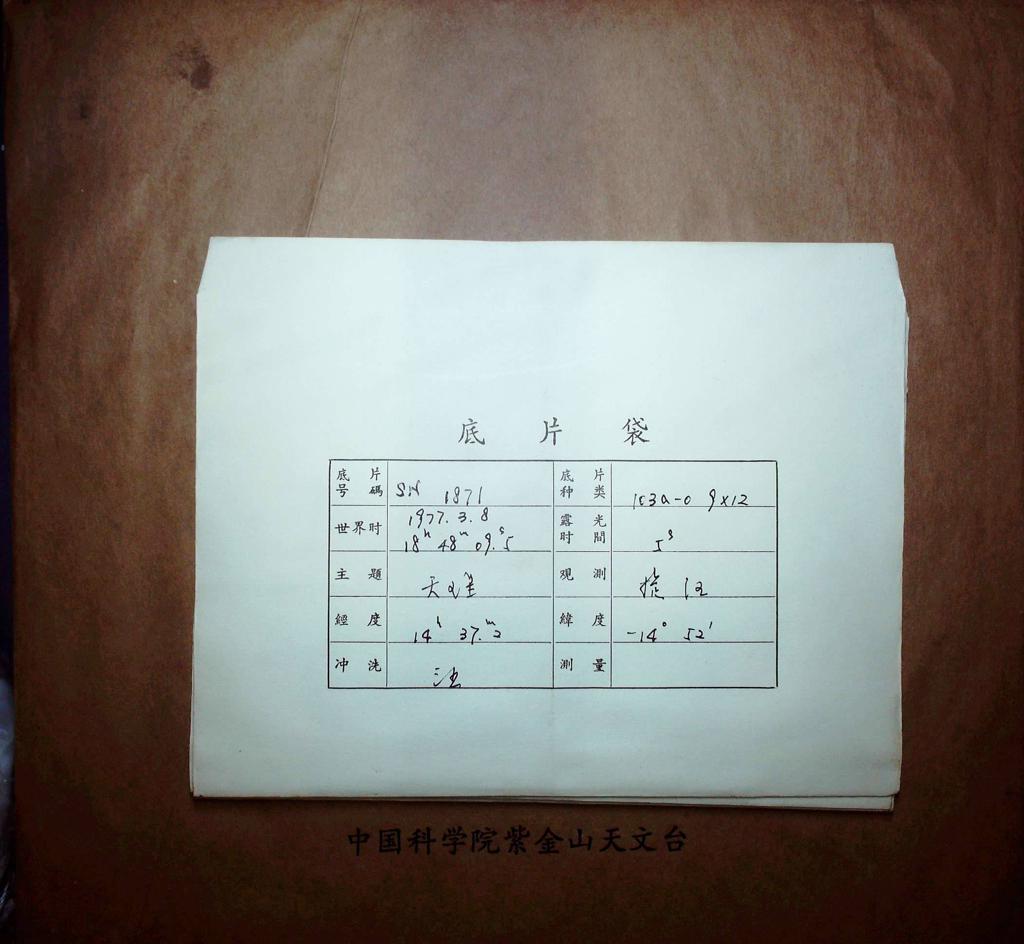 底片袋
底片号碼 SN 1871 底片种类 103a-0 9x12
世界时 1977.3.8 18ʰ 48ᵐ 09ˢ.5 露光時間 5ˢ
主題 天 观測
經度 14ʰ 37ᵐ.2 緯度 -14° 52'
冲洗 測量
中国科学院紫金山天文台